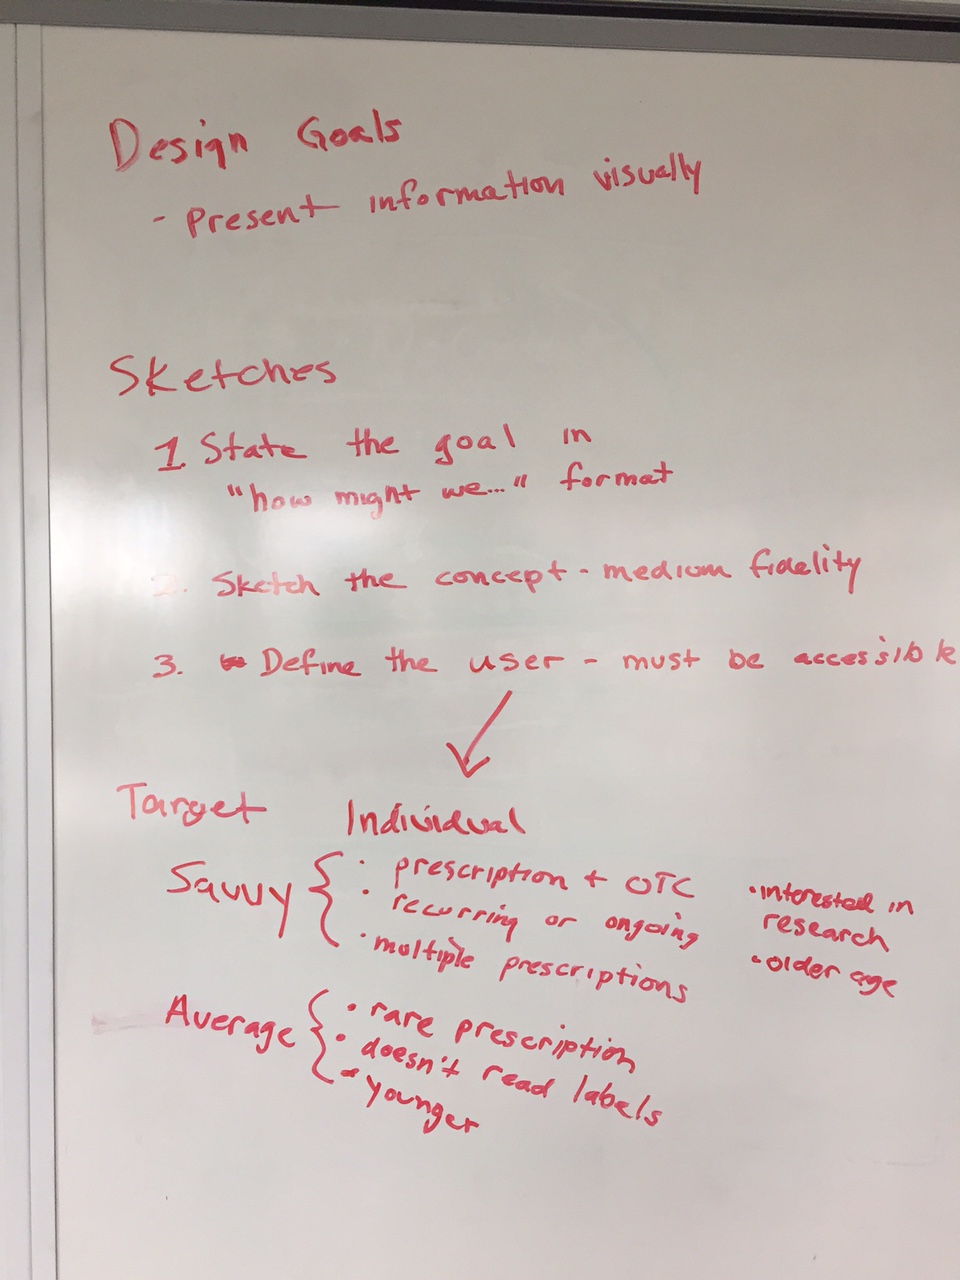 Design Goals
- Present information visually
Sketches
1. State the goal in
"how might we..." format
2. Sketch the concept - medium fidelity
3. Define the user - must be accessible
Target Individual
Savvy { · prescription + OTC
· recurring or ongoing
· multiple prescriptions
· interested in
research
· older age
Average { · rare prescription
· doesn't read labels
· younger